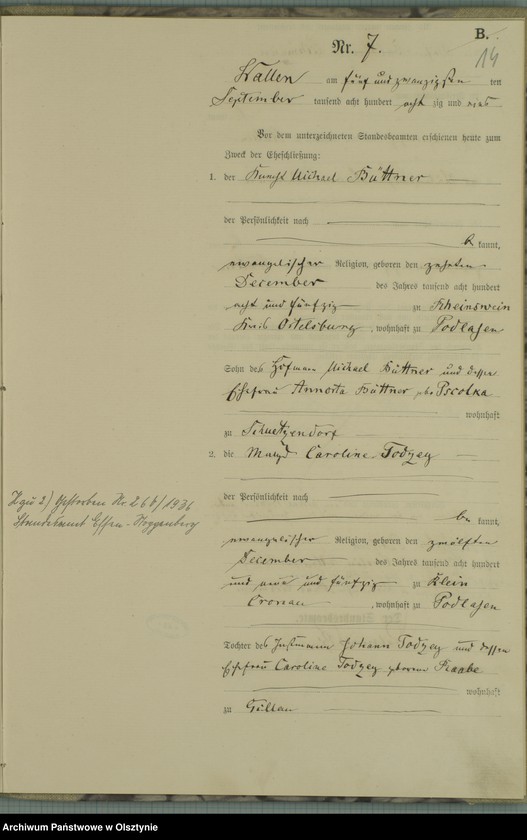 B.
14
Nr. 7.
Wallen am fünf und zwanzigsten ten
September tausend acht hundert acht zig und eins
Vor dem unterzeichneten Standesbeamten erschienen heute zum
Zweck der Eheschließung:
1. der Knecht Michael Büttner
der Persönlichkeit nach
be kannt,
evangelischer Religion, geboren den zehnten
December des Jahres tausend acht hundert
acht und fünfzig zu Rheinswein
Kreis Ortelsburg, wohnhaft zu Podlasen
Sohn des Hofmann Michael Büttner und dessen
Ehefrau Annorta Büttner geb. Pscolka
wohnhaft
zu Schuetzendorf
2. die Magd Caroline Todzey
der Persönlichkeit nach
be kannt,
evangelischer Religion, geboren den zwölften
December des Jahres tausend acht hundert
und und fünfzig zu Klein
Cronau, wohnhaft zu Podlasen
Tochter des Instmann Johann Todzey und dessen
Ehefrau Caroline Todzey geborene Raabe
wohnhaft
zu Gillau
Zu 2) Gestorben Nr. 268/1936
Standesamt Essen-Stoppenberg
Archiwum Państwowe w Olsztynie